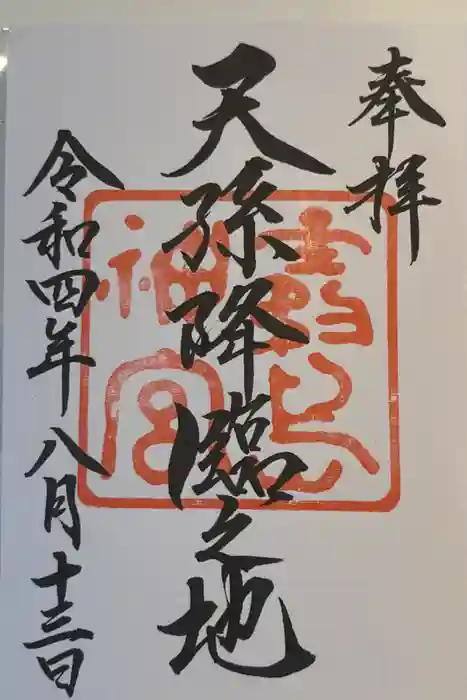 奉拝
天孫降臨之地
霧島神宮
令和四年八月十三日